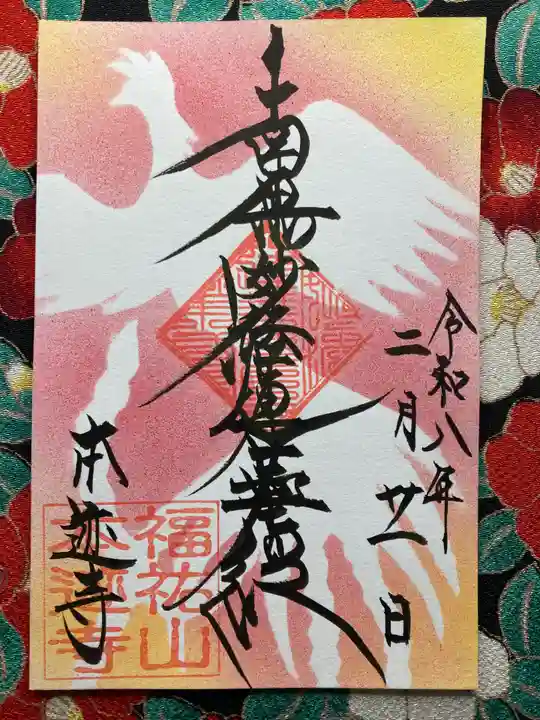 令和八年
二月廿一日
南無妙法蓮華経
本迹寺
福祐山
本迹寺